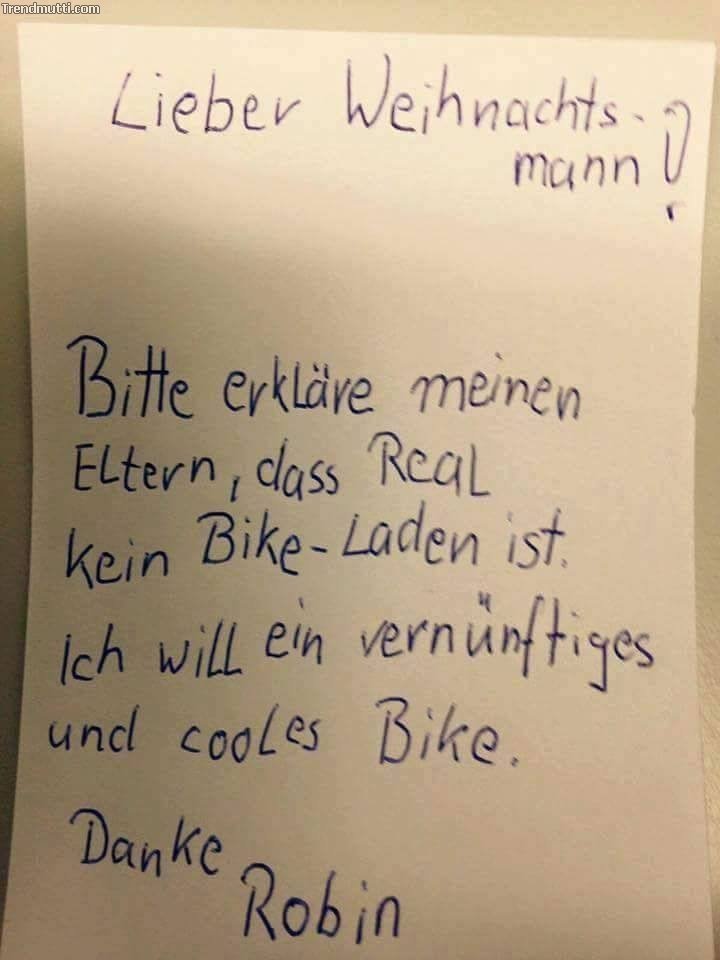 Trendmutti.com
Lieber Weihnachts-
mann!
Bitte erkläre meinen
Eltern, dass Real
kein Bike-Laden ist.
Ich will ein vernünftiges
und cooles Bike.
Danke
Robin